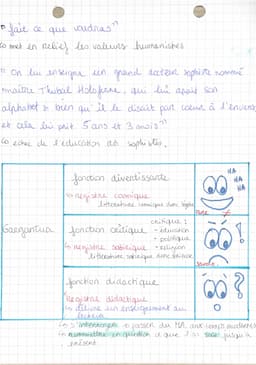 "fait ce que voudras"
↳ met en relief les valeurs humanistes
"On lui enseigna un grand docteur sophiste nommé
maître Thubal Holoferne, qui lui apprit son
alphabet si bien qu'il le disait par coeur à l'envers
et cela lui prit 5 ans et 3 mois"
↳ echec de l'education des sophistes.
Gargantua
fonction divertissante
↳ registre comique
littérature comique donc légère
HA HA HA
rire
fonction critique
critique :
- éducation
- politique
- religion
↳ registre satirique
littérature satirique donc
fonction didactique
Registre didactique
↳ délivre un enseignement au lecteur
↳ s'interroger
↳ remettre en question ce que l'on jusqu'à
présent